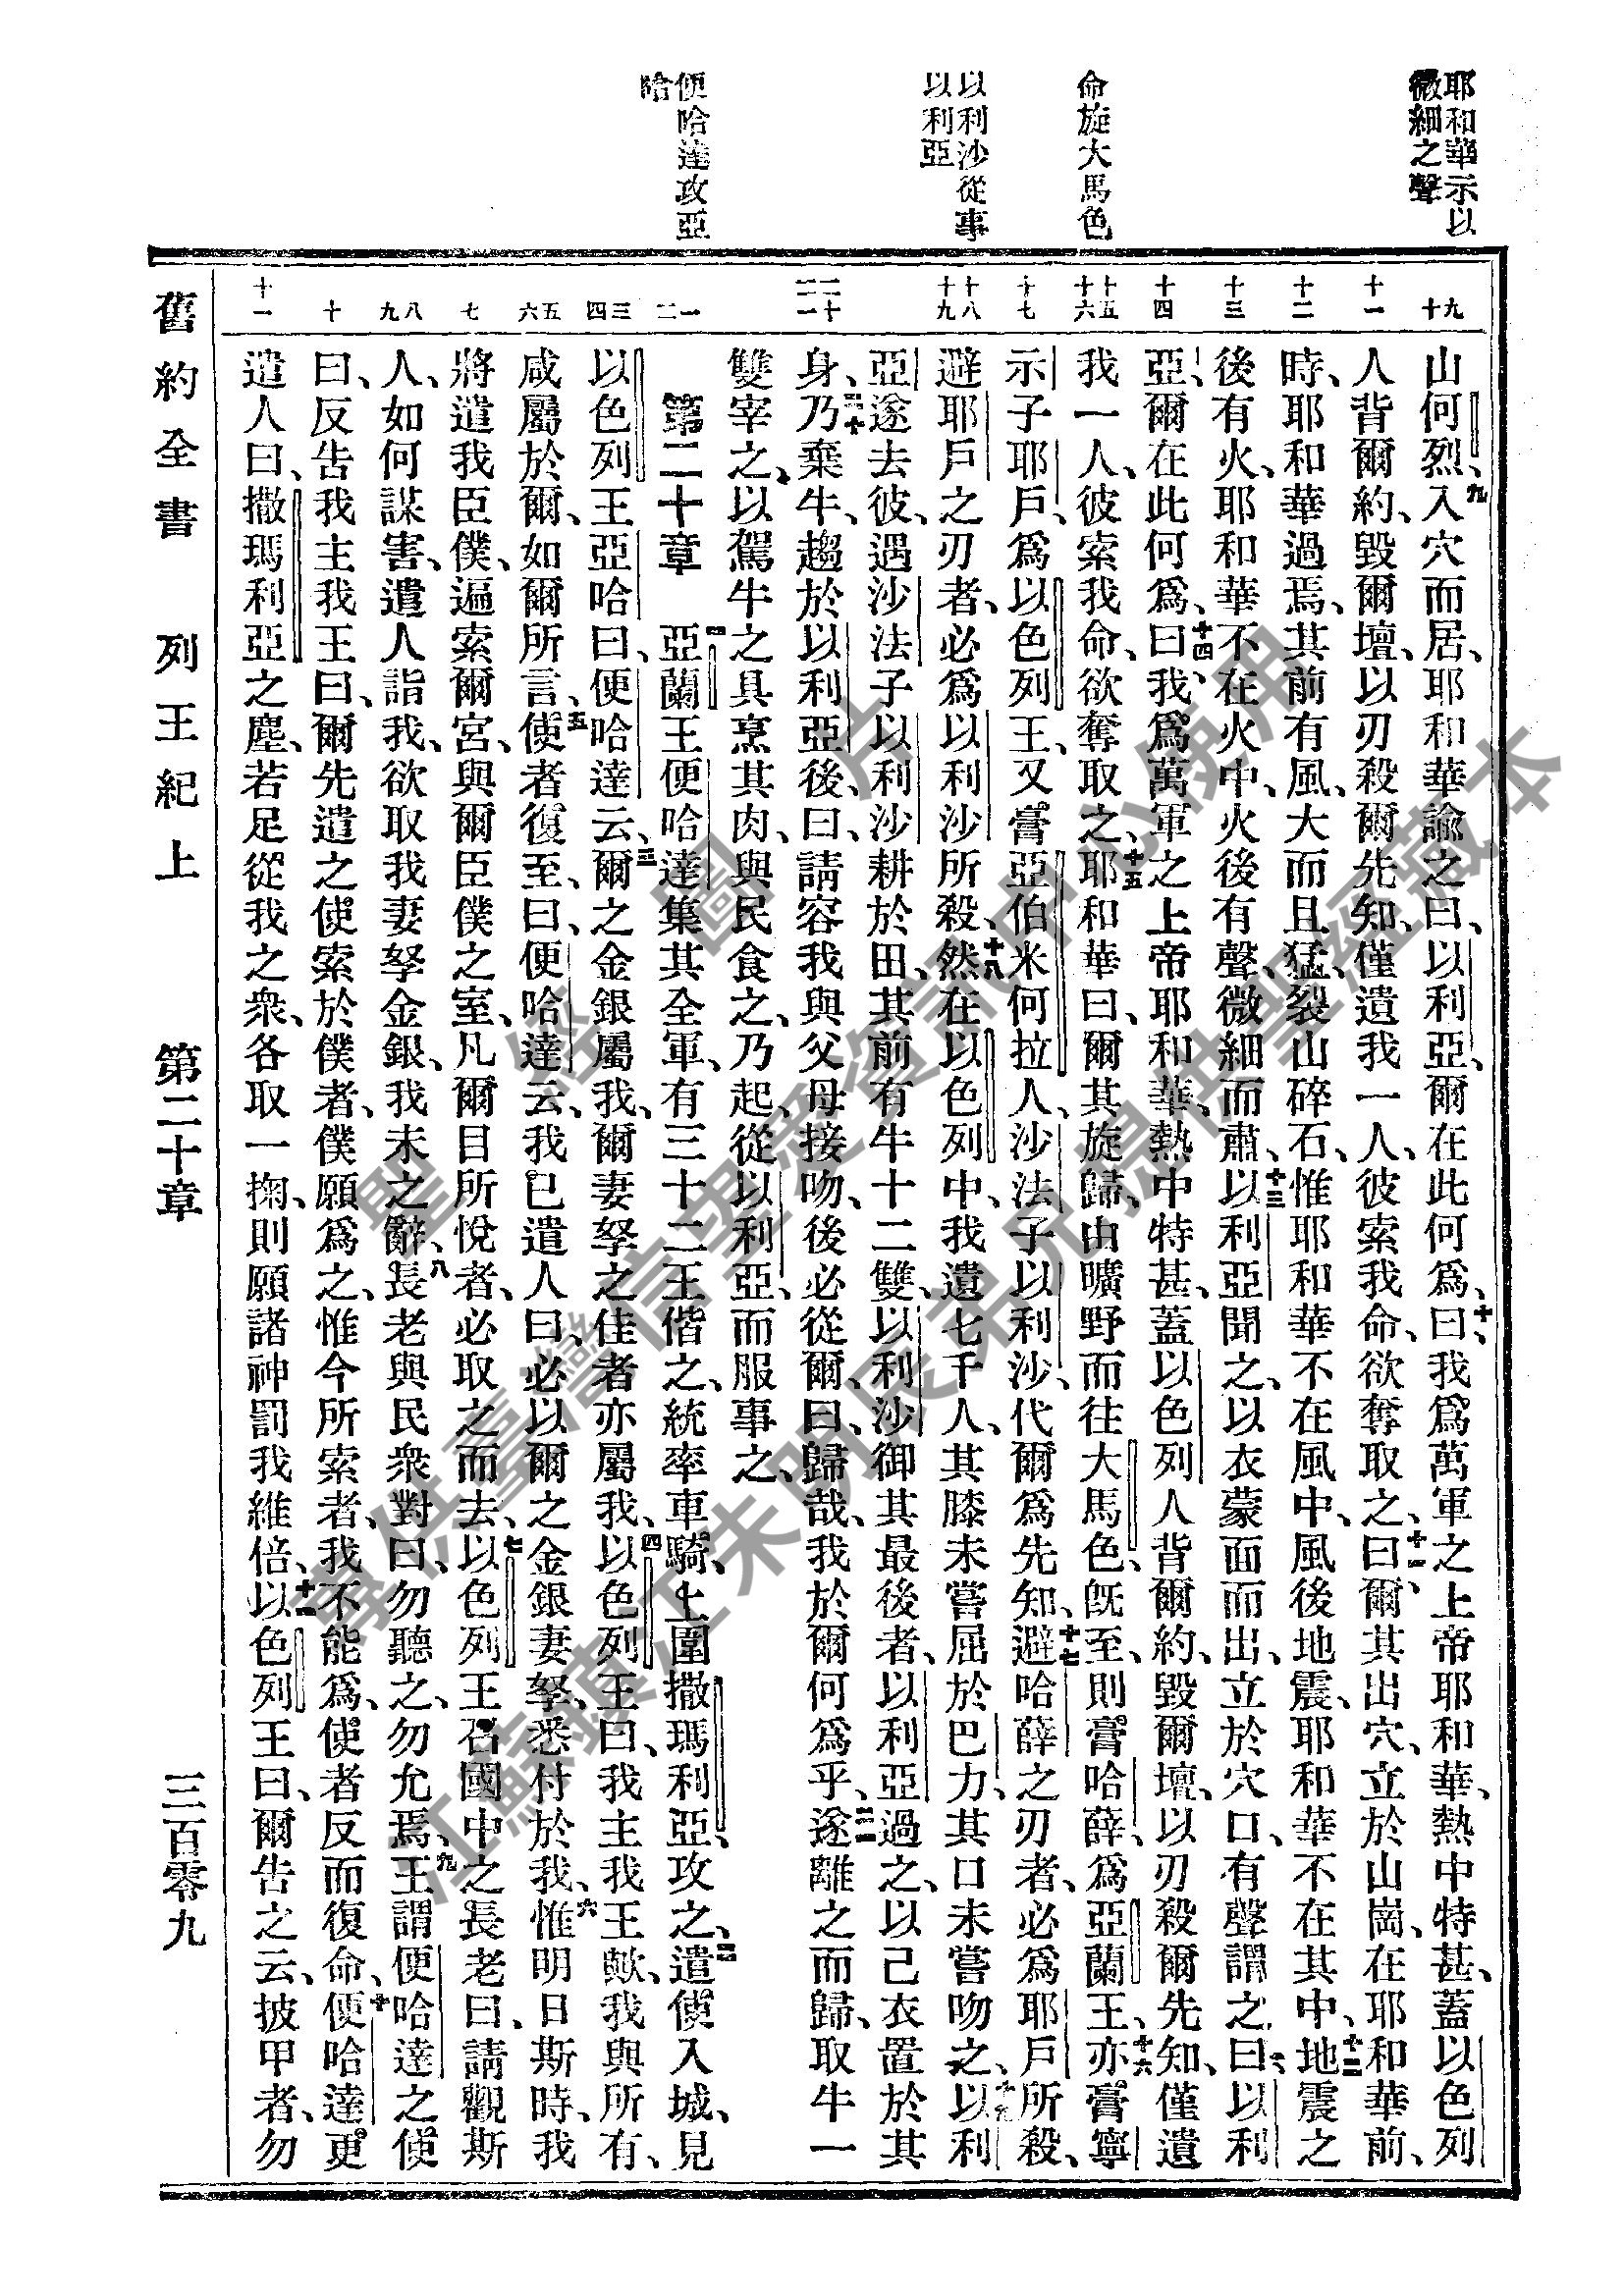 耶和華示以
微細之聲
命旋大馬色
以利沙從事
以利亞
便哈達攻亞
哈
九 十
十一
十二
十三
十四
十五 十六
十七
十八 十九
二十 二一
一 二
三 四
五 六
七
八 九
十
十一
山何烈、九入穴而居、耶和華諭之曰、以利亞、爾在此何爲、十曰、我爲萬軍之上帝耶和華、熱中特甚、蓋以色列
人背爾約、毀爾壇、以刃殺爾先知、僅遺我一人、彼索我命、欲奪取之、十一曰、爾其出穴、立於山崗、在耶和華前、
時、耶和華過焉、其前有風、大而且猛、裂山碎石、惟耶和華不在風中、風後地震、耶和華不在其中、十二地震之
後有火、耶和華不在火中、火後有聲、微細而肅、十三以利亞聞之、以衣蒙面而出、立於穴口、有聲謂之曰、以利
亞、爾在此何爲、十四曰、我爲萬軍之上帝耶和華、熱中特甚、蓋以色列人背爾約、毀爾壇、以刃殺爾先知、僅遺
我一人、彼索我命、欲奪取之、十五耶和華曰、爾其旋歸、由曠野而往大馬色、旣至、則膏哈薛、爲亞蘭王、十六亦膏寧
示子耶戶、爲以色列王、又膏亞伯米何拉人、沙法子以利沙、代爾爲先知、十七避哈薛之刃者、必爲耶戶所殺、
避耶戶之刃者、必爲以利沙所殺、十八然在以色列中、我遺七千人、其膝未嘗屈於巴力、其口未嘗吻之、十九以利
亞遂去彼、遇沙法子以利沙耕於田、其前有牛十二雙、以利沙御其最後者、以利亞過之、以己衣置於其
身、二十乃棄牛、趨於以利亞後、曰、請容我與父母接吻、後必從爾、曰、歸哉、我於爾何爲乎、二一遂離之而歸、取牛一
雙宰之、以駕牛之具烹其肉、與民食之、乃起、從以利亞、而服事之、
第二十章 一亞蘭王便哈達集其全軍、有三十二王偕之、統率車騎、上圍撒瑪利亞、攻之、二遣使入城、見
以色列王亞哈曰、便哈達云、三爾之金銀屬我、爾妻孥之佳者亦屬我、四以色列王曰、我主我王歟、我與所有、
咸屬於爾、如爾所言、五使者復至、曰、便哈達云、我已遣人曰、必以爾之金銀妻孥、悉付於我、六惟明日斯時、我
將遣我臣僕、遍索爾宮、與爾臣僕之室、凡爾目所悅者、必取之而去、七以色列王召國中之長老曰、請觀斯
人、如何謀害、遣人詣我、欲取我妻孥金銀、我未之辭、八長老與民衆對曰、勿聽之、勿允焉、九王謂便哈達之使
曰、反告我主我王曰、爾先遣之使、索於僕者、僕願爲之、惟今所索者、我不能爲、使者反而復命、十便哈達更
遣人曰、撒瑪利亞之塵、若足從我之衆、各取一掬、則願諸神罰我維倍、十一以色列王曰、爾告之云、披甲者、勿
舊約全書 列王紀上 第二十章 三百零九
聖經圖片
專供臺灣信望愛資訊中心使用
江蘇鎮江朱明辰弟兄提供聖經藏本